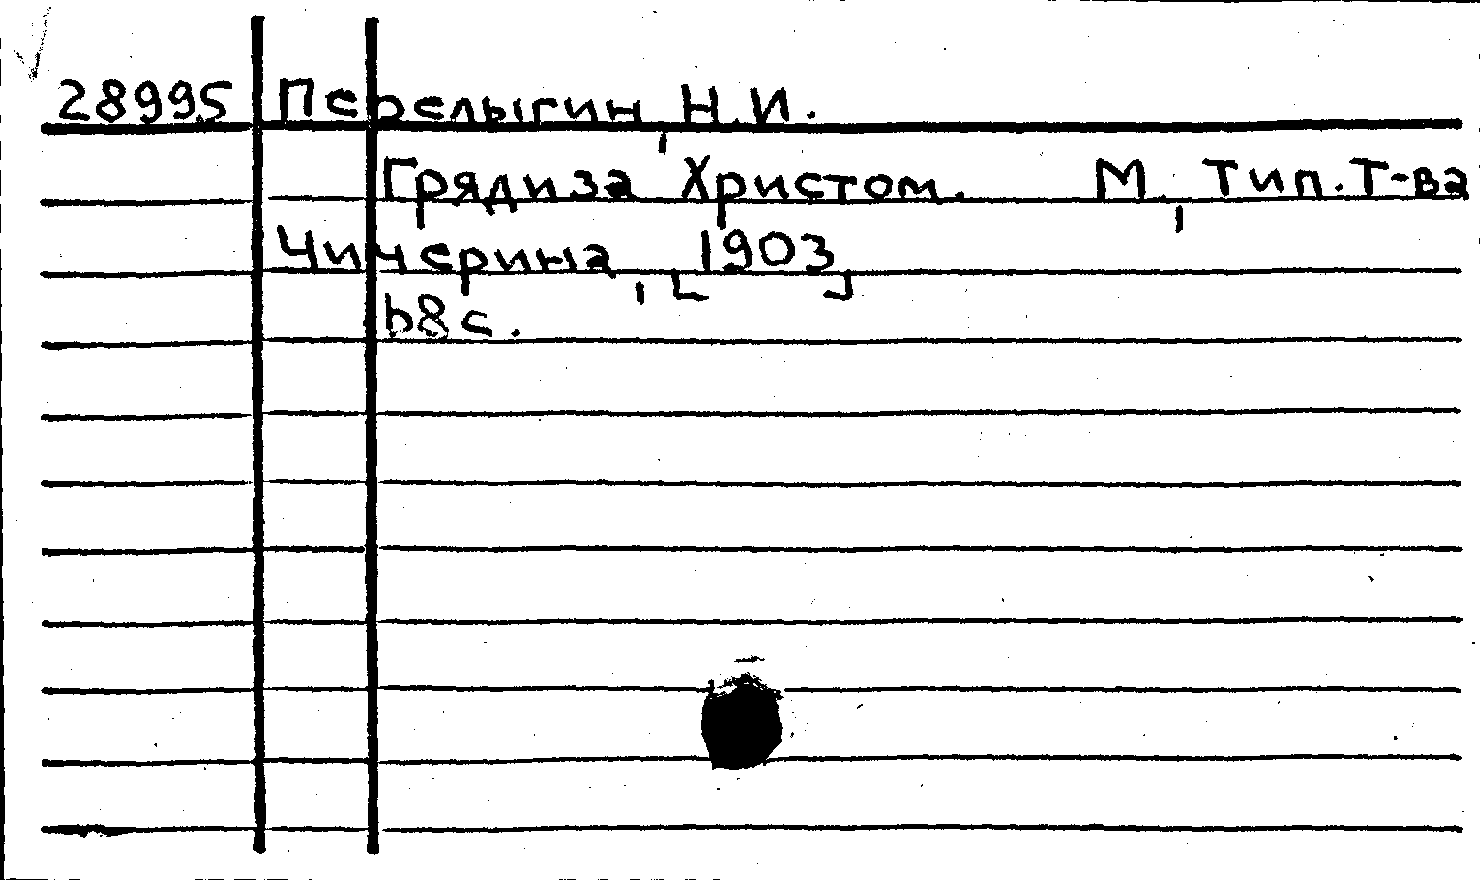 28995 Перелыгин, Н.И.
Грядиза Христом. М., Тип. Т-ва
Чичерина, [1903]
b8c.